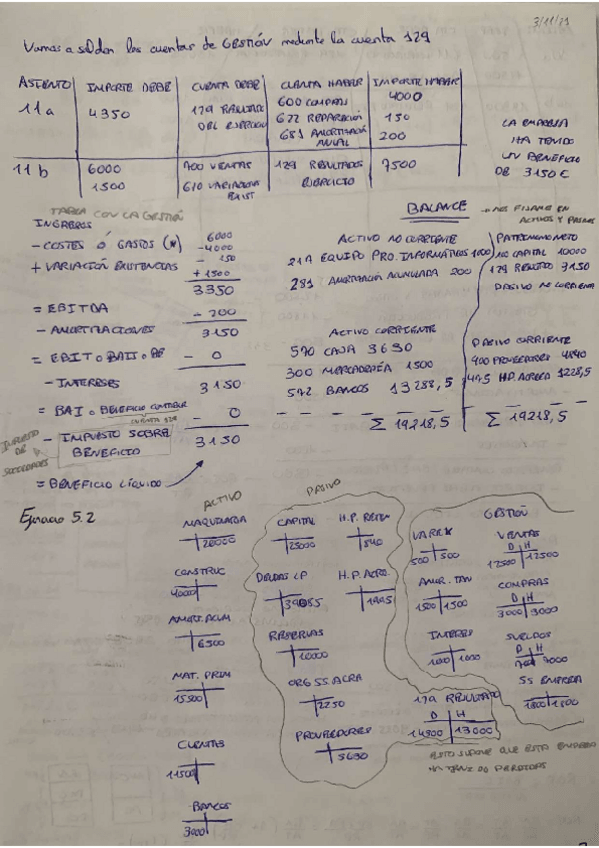 3/11/21
Vamos a saldar las cuentas de GESTIÓN mediante la cuenta 129
ASIENTO IMPORTE DEBE CUENTA DEBE CUENTA HABER IMPORTE HABER
11a 4350 129 RESULTADO DEL EJERCICIO 600 COMPRAS 4000
622 REPARACIÓN 150
681 AMORTIZACIÓN ANUAL 200
11b 6000 700 VENTAS 129 RESULTADOS EJERCICIO 7500
1500 610 VARIACIÓN EXIST
LA EMPRESA
HA TENIDO
UN BENEFICIO
DE 3150 €
TABLA CON LA GESTIÓN
INGRESOS 6000
- COSTES O GASTOS (N) -4000
- 150
+ VARIACIÓN EXISTENCIAS + 1500
3350
= EBITDA
- AMORTIZACIONES - 200
3150
= EBIT o BAIT o BE
- INTERESES - 0
3150
= BAI o BENEFICIO CONTABLE
- IMPUESTO SOBRE BENEFICIO - 0
3150
IMPUESTO
DE
SOCIEDADES
= BENEFICIO LÍQUIDO
BALANCE → NOS FIJAMOS EN
ACTIVOS Y PASIVOS
ACTIVO NO CORRIENTE
217 EQUIPO PRO. INFORMÁTICOS 1000
281 AMORTIZACIÓN ACUMULADA 200
ACTIVO CORRIENTE
570 CAJA 3630
300 MERCADERÍA 1500
572 BANCOS 13288,5
Σ 19218,5
PATRIMONIO NETO
100 CAPITAL 10000
129 RESULTADO 3150
PASIVO NO CORRIENTE
PASIVO CORRIENTE
400 PROVEEDORES 4840
475 H.P. ACREED 1228,5
Σ 19218,5
Ejercicio 5.2
ACTIVO
MAQUINARIA
20000
CONSTRUC
4000
AMORT. ACUM
6500
MAT. PRIM
15500
CLIENTES
11500
BANCOS
3000
PASIVO
CAPITAL
25000
H.P. RETEN
840
DEUDAS CP
39085
H.P. ACRE.
1445
RESERVAS
10000
ORG SS. ACREA
2250
PROVEEDORES
5630
GESTIÓN
VAR. EX
500 500
VENTAS
D H
12500 12500
AMOR. TAN
1500 1500
COMPRAS
D H
3000 3000
INTERES
1000 1000
SUELDOS
D H
7000 7000
SS EMPRESA
1800 1800
129 RESULTADO
D H
14800 13000
ESTO SUPONE QUE ESTA EMPRESA
HA TENIDO PÉRDIDAS